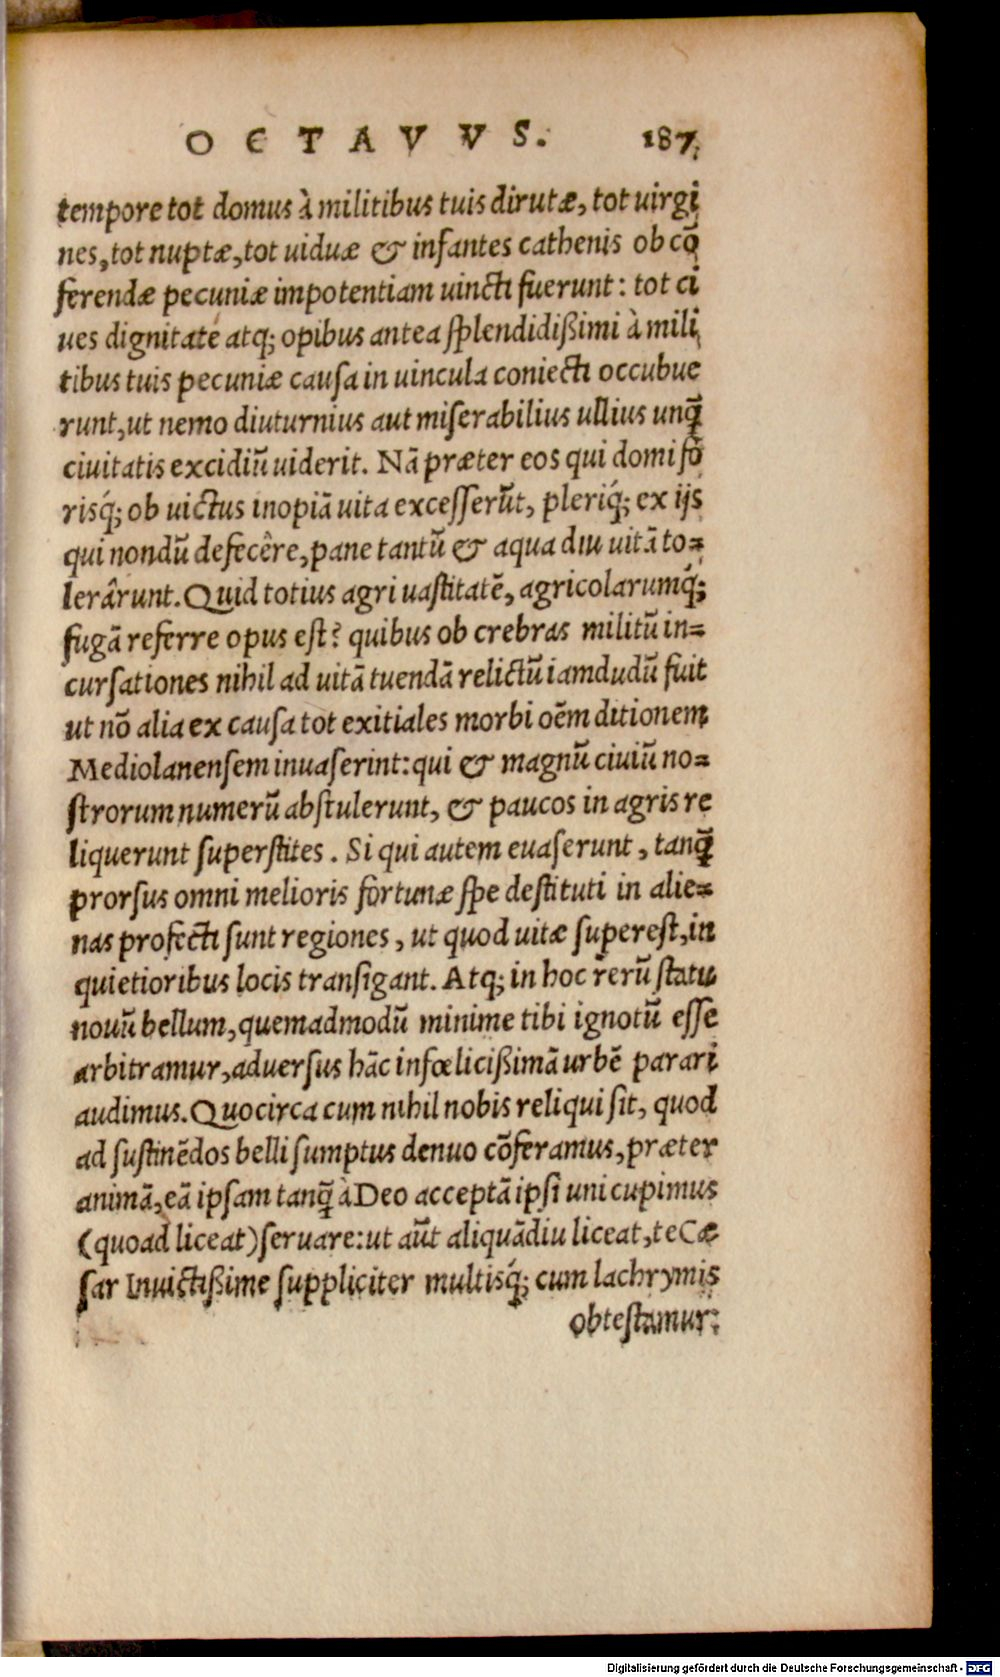 OCTAVVS. 187
tempore tot domus à militibus tuis dirutæ, tot uirgi
nes, tot nuptæ, tot uiduæ & infantes cathenis ob cõ
ferendæ pecuniæ impotentiam uincti fuerunt: tot ci
ues dignitate atq; opibus antea splendidißimi à mili
tibus tuis pecuniæ causa in uincula coniecti occubue
runt, ut nemo diuturnius aut miserabilius ullius unq̃
ciuitatis excidiũ uiderit. Nã præter eos qui domi fo
risq́; ob uictus inopiã uita excesserũt, pleriq́; ex ijs
qui nondũ defecêre, pane tantũ & aqua diu uitã to=
lerârunt. Quid totius agri uastitatẽ, agricolarumq́;
fugã referre opus est? quibus ob crebras militũ in=
cursationes nihil ad uitã tuendã relictũ iamdudũ fuit
ut nõ alia ex causa tot exitiales morbi oẽm ditionem
Mediolanensem inuaserint: qui & magnũ ciuiũ no=
strorum numerũ abstulerunt, & paucos in agris re
liquerunt superstites. Si qui autem euaserunt, tanq̃
prorsus omni melioris fortunæ spe destituti in alie=
nas profecti sunt regiones, ut quod uitæ superest, in
quietioribus locis transigant. Atq; in hoc rerũ statu
nouũ bellum, quemadmodũ minime tibi ignotũ esse
arbitramur, aduersus hãc infœlicißimã urbẽ parari
audimus. Quocirca cum nihil nobis reliqui sit, quod
ad sustinẽdos belli sumptus denuo cõferamus, præter
animã, eã ipsam tanq̃ à Deo acceptã ipsi uni cupimus
(quoad liceat) seruare: ut aũt aliquãdiu liceat, te Cæ
sar Inuictißime suppliciter multisq́; cum lachrymis
obtestamur:
Digitalisierung gefördert durch die Deutsche Forschungsgemeinschaft - DFG